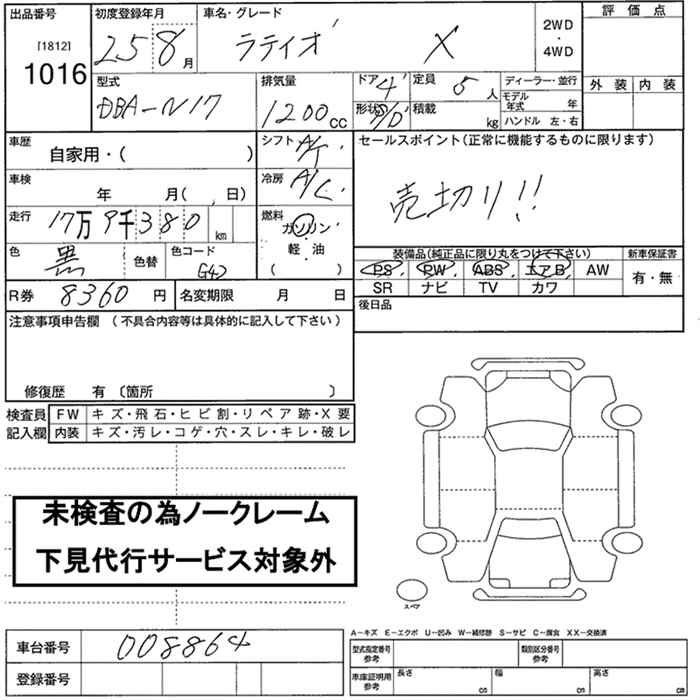 出品番号
[1812]
1016
初度登録年月
25 8 月
車名・グレード
ラティオ X
2WD
・
4WD
評価点
外装 内装
型式
DBA-N17
排気量
1200 CC
ドア 4
形状 S/D
定員 5 人
積載 kg
ディーラー・並行
モデル年式 年
ハンドル 左・右
車歴
自家用・( )
シフト A/T
セールスポイント(正常に機能するものに限ります)
売切り!!
車検
年 月( 、日)
冷房 A/C
走行 17万9千380 km
燃料
ガソリン
軽・油
( )
色 黒 色替
色コード
G42
装備品(純正品に限り丸をつけて下さい)
新車保証書
PS PW ABS エアB AW
有・無
SR ナビ TV カワ
R券 8360 円
名変期限 月 日
後日品
注意事項申告欄 (不具合内容等は具体的に記入して下さい)
修復歴 有 〔箇所 〕
検査員 FW キズ・飛石・ヒビ割・リペア跡・X要
記入欄 内装 キズ・汚レ・コゲ・穴・スレ・キレ・破レ
未検査の為ノークレーム
下見代行サービス対象外
スペア
A-キズ E-エクボ U-凹み W-補修跡 S-サビ C-腐食 XX-交換済
車台番号 008864
型式指定番号
参考
類別区分番号
参考
登録番号
車庫証明用
参考
長さ cm
幅 cm
高さ cm